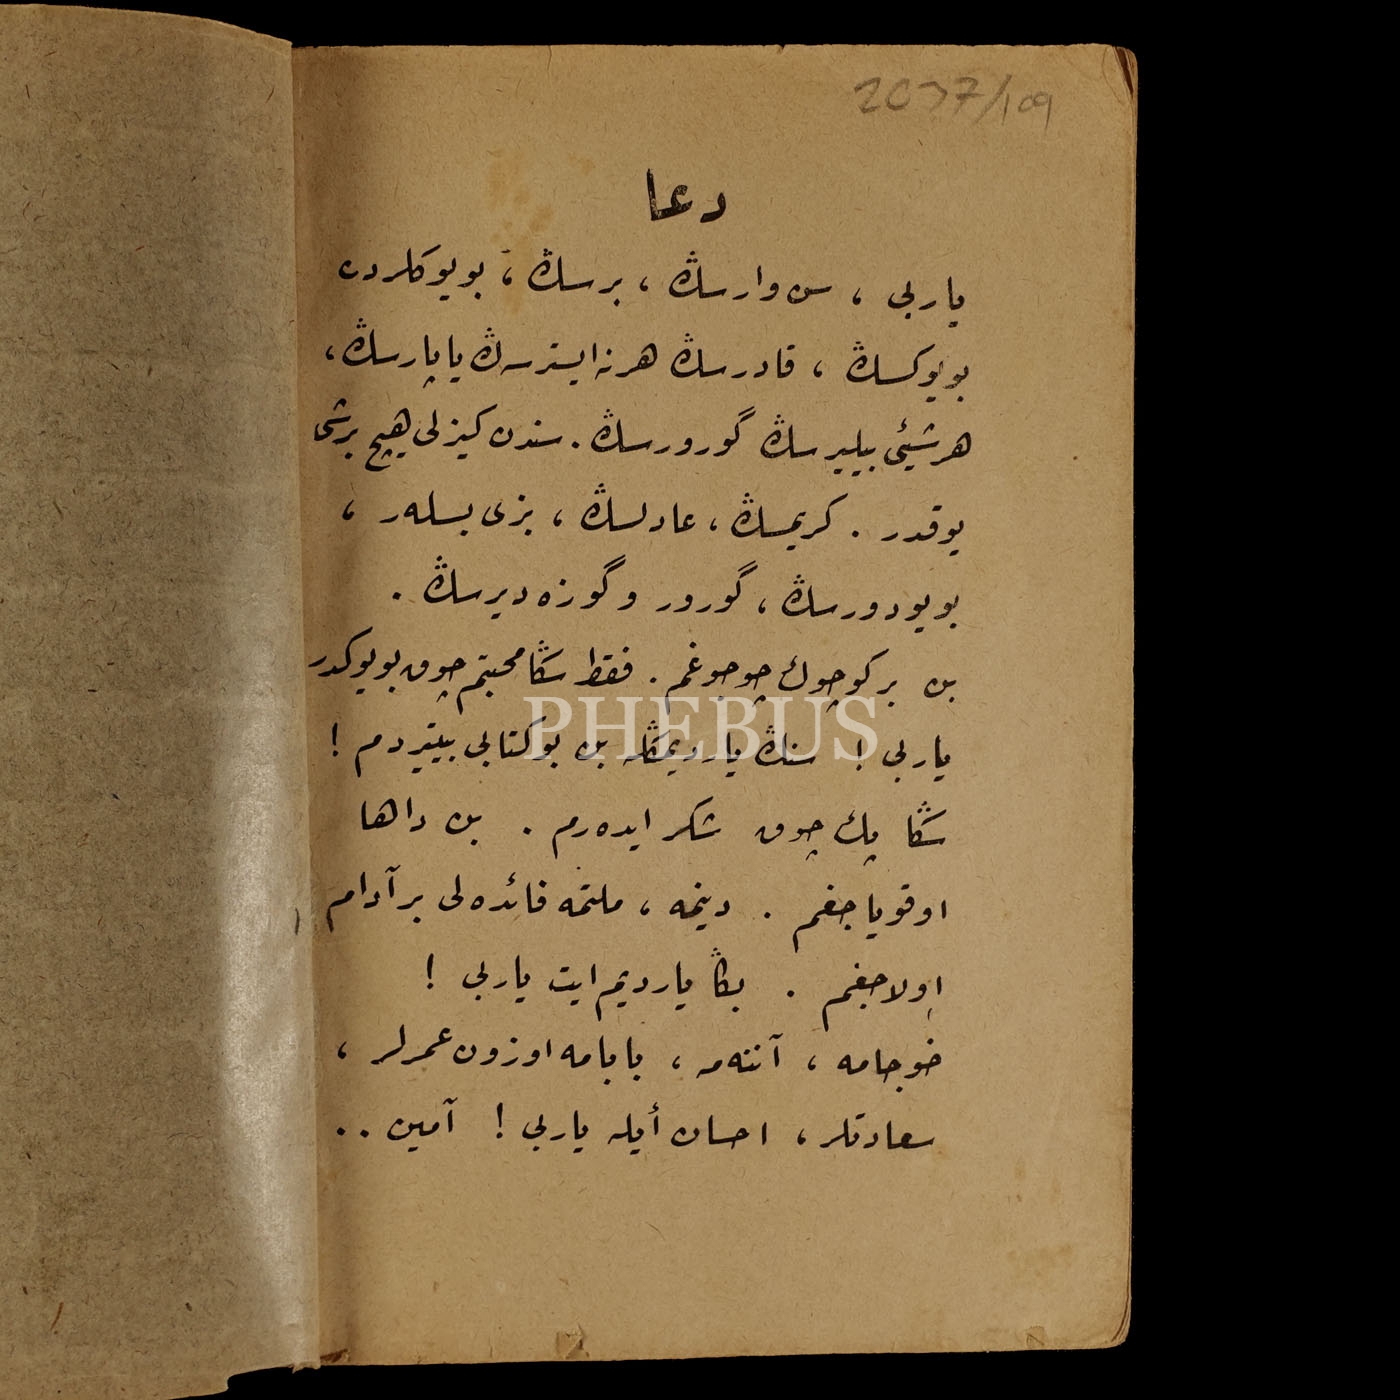 2037/109
دعا
ياربى ، سن وارسڭ ، برسڭ ، بويوكلردن
بويوكسڭ ، قادرسڭ هرنه ايسترسه‌ڭ ياپارسڭ ،
هرشيئى بيليرسڭ گورورسڭ . سندن كيزلى هيچ برشى
يوقدر . كريمسڭ ، عادلسڭ ، بزى بسله‌ر ،
بويودورسڭ ، گورور و گوزه ديرسڭ .
بن بر كوچوك چوجوغم . فقط سڭا محبتم چوق بويوكدر
PHEBUS
ياربى ! سنڭ يارديمڭله بن بوكتابى بيتيردم !
سڭا پك چوق شكر ايده‌رم . بن داها
اوقوياجغم . دينمه ، ملتمه فائده‌لى بر آدام
اولاجغم . بڭا يارديم ايت ياربى !
خوجامه ، آننه‌مه ، بابامه اوزون عمرلر ،
سعادتلر ، احسان أيله ياربى ! آمين ..